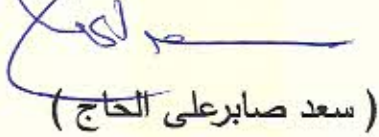 ( سعد صابرعلى الحاج )